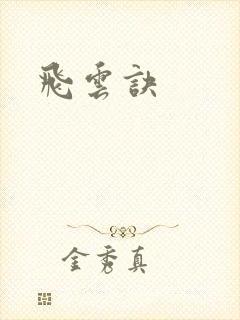 飛雲訣
金秀真